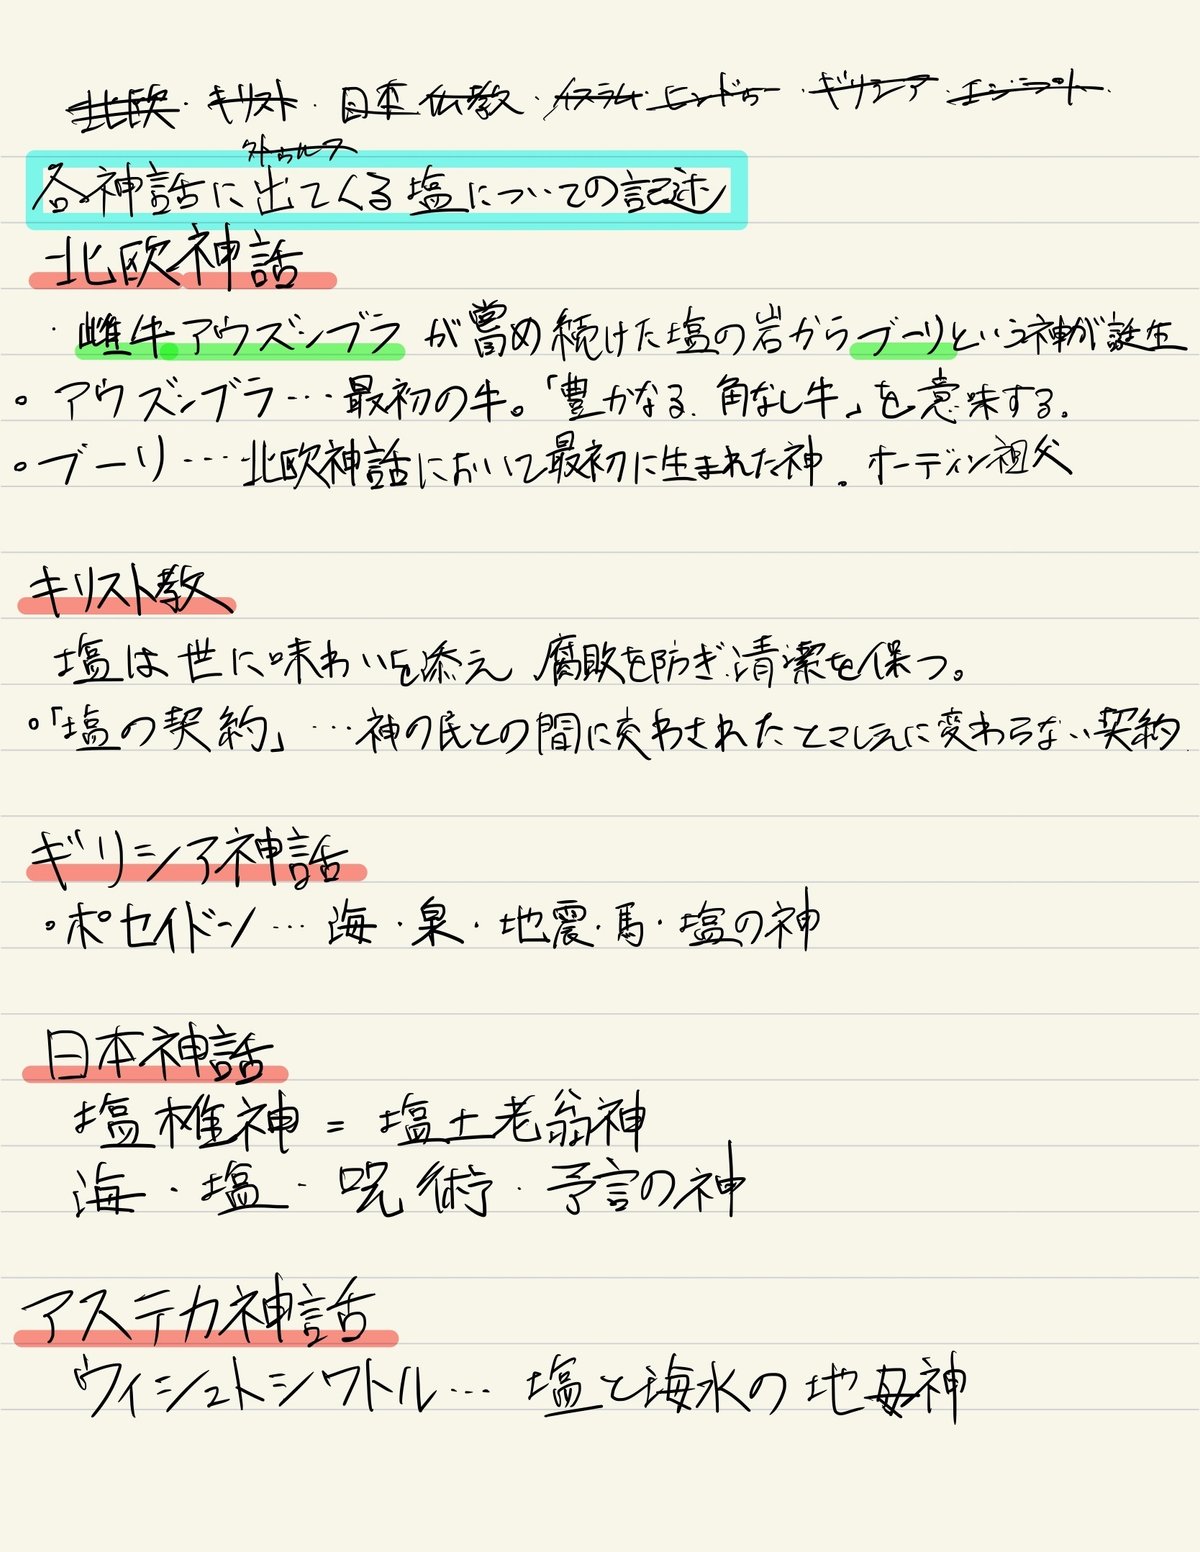 北欧・キリスト・日本 仏教・イスラム・ヒンドゥー・ギリシア・エジプト・
各神話に出てくる塩についての記述
北欧神話
・雌牛アウズンブラが嘗め続けた塩の岩からブーリという神が誕生
。アウズンブラ…最初の牛。「豊かなる、角なし牛」を意味する。
。ブーリ…北欧神話において最初に生まれた神。オーディン祖父
キリスト教
塩は世に味わいを添え、腐敗を防ぎ清潔を保つ。
。「塩の契約」…神の民との間に交わされたとこしえに変わらない契約
ギリシア神話
。ポセイドン…海・泉・地震・馬・塩の神
日本神話
塩椎神=塩土老翁神
海・塩・呪術・予言の神
アステカ神話
ウィシュトシワトル…塩と海水の地母神